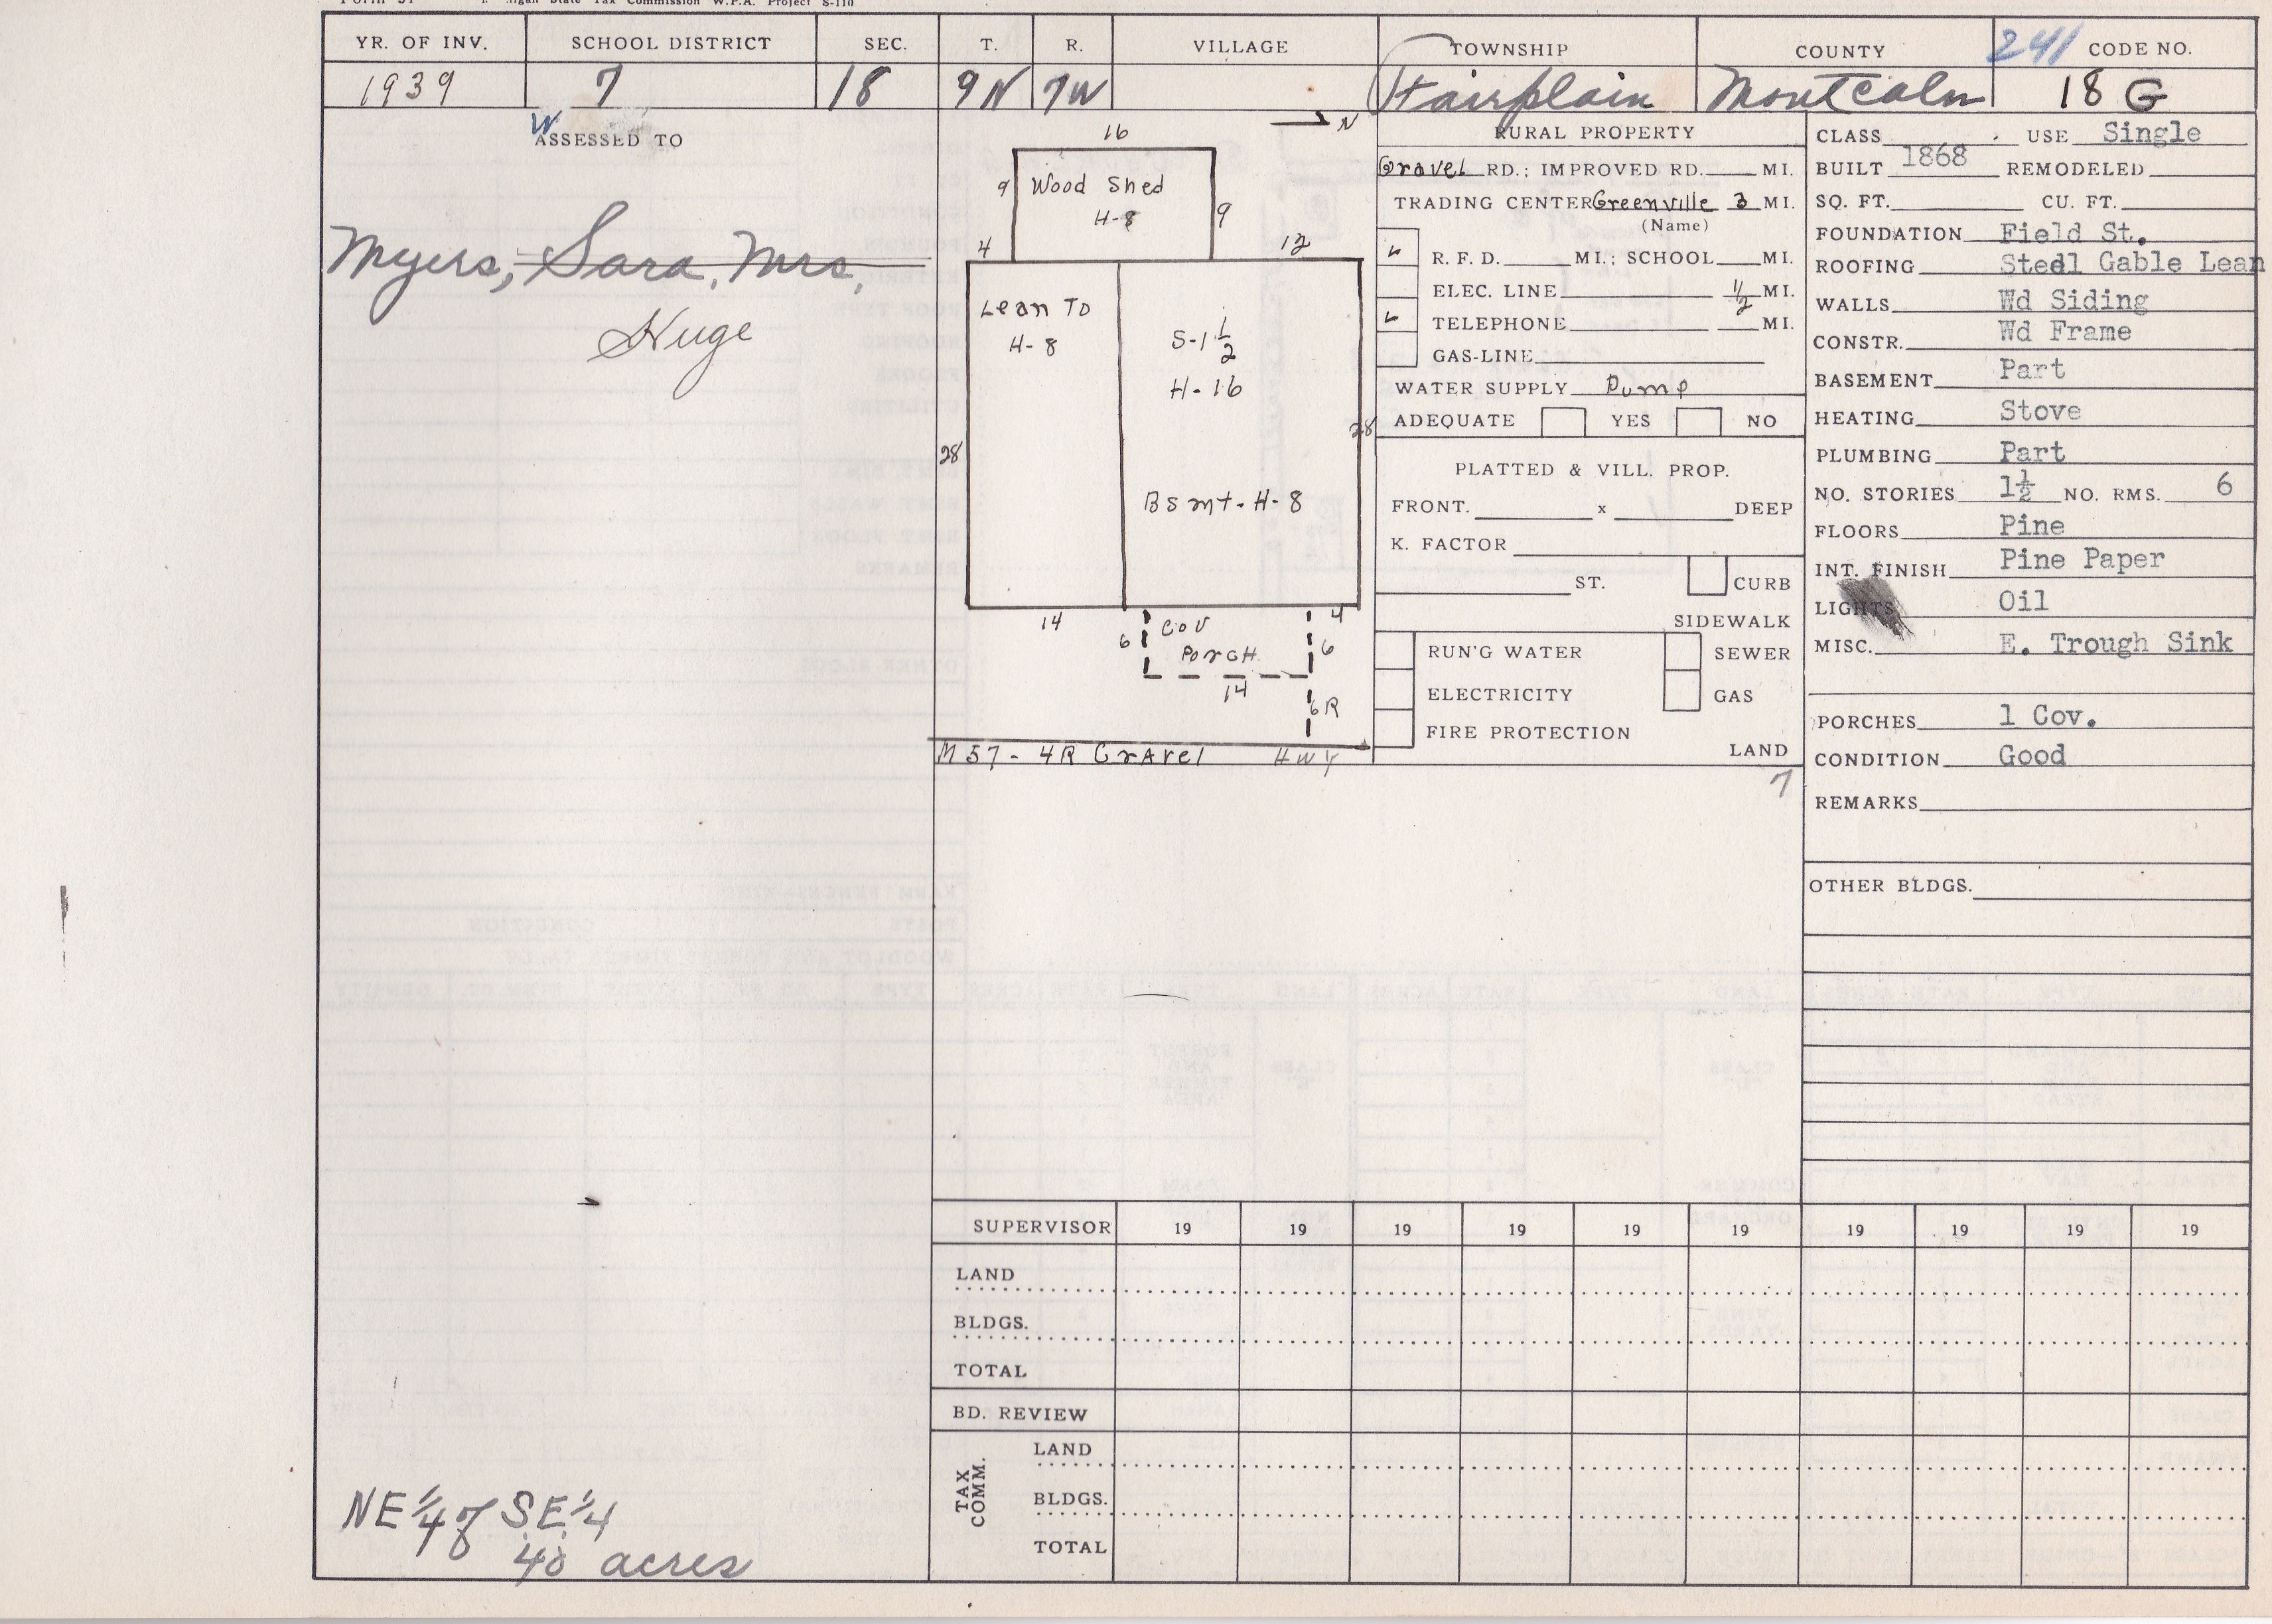 Form 51 Michigan State Tax Commission W.P.A. Project S-110
YR. OF INV. SCHOOL DISTRICT SEC. T. R. VILLAGE TOWNSHIP COUNTY 241 CODE NO.
1939 7 18 9N 7W Fairplain Montcalm 18 G
W
ASSESSED TO
Myers, Sara, Mrs.
Huge
NE 1/4 of SE 1/4
40 acres
N
16
9 Wood Shed 9
H-8
4 12
Lean To
H-8
S-1 1/2
H-16
28 28
Bsmt-H-8
14 4
6 COV 6
PorcH
14
6R
M57-4R GrAvel HWY
RURAL PROPERTY
Gravel RD.; IMPROVED RD. MI.
TRADING CENTER Greenville 3 MI.
(Name)
R. F. D. MI.; SCHOOL MI.
ELEC. LINE 1/2 MI.
TELEPHONE MI.
GAS-LINE
WATER SUPPLY Pump
ADEQUATE YES NO
PLATTED & VILL. PROP.
FRONT. x DEEP
K. FACTOR
ST. CURB
SIDEWALK
RUN'G WATER SEWER
ELECTRICITY GAS
FIRE PROTECTION
LAND
7
CLASS USE Single
BUILT 1868 REMODELED
SQ. FT. CU. FT.
FOUNDATION Field St.
ROOFING Steel Gable Lean
WALLS Wd Siding
CONSTR. Wd Frame
BASEMENT Part
HEATING Stove
PLUMBING Part
NO. STORIES 1½ NO. RMS. 6
FLOORS Pine
INT. FINISH Pine Paper
LIGHTS Oil
MISC. E. Trough Sink
PORCHES 1 Cov.
CONDITION Good
REMARKS
OTHER BLDGS.
SUPERVISOR 19 19 19 19 19 19 19 19 19 19
LAND
BLDGS.
TOTAL
BD. REVIEW
TAX COMM.
LAND
BLDGS.
TOTAL